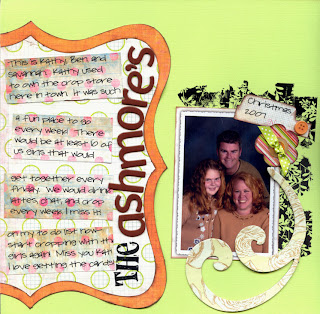 This is Kathy, Ben and
Savannah. Kathy used
to own the crop store
here in town. It was such
a fun place to go
every week! There
would be at least 6 of
us girls that would
get together every
Friday. We would drink
lattes, chat, and crop
every week. I miss it!
on my to do list now
start cropping with the
girls again! Miss you Kat
love getting the cards!
THE ashmore's
Christmas
2007